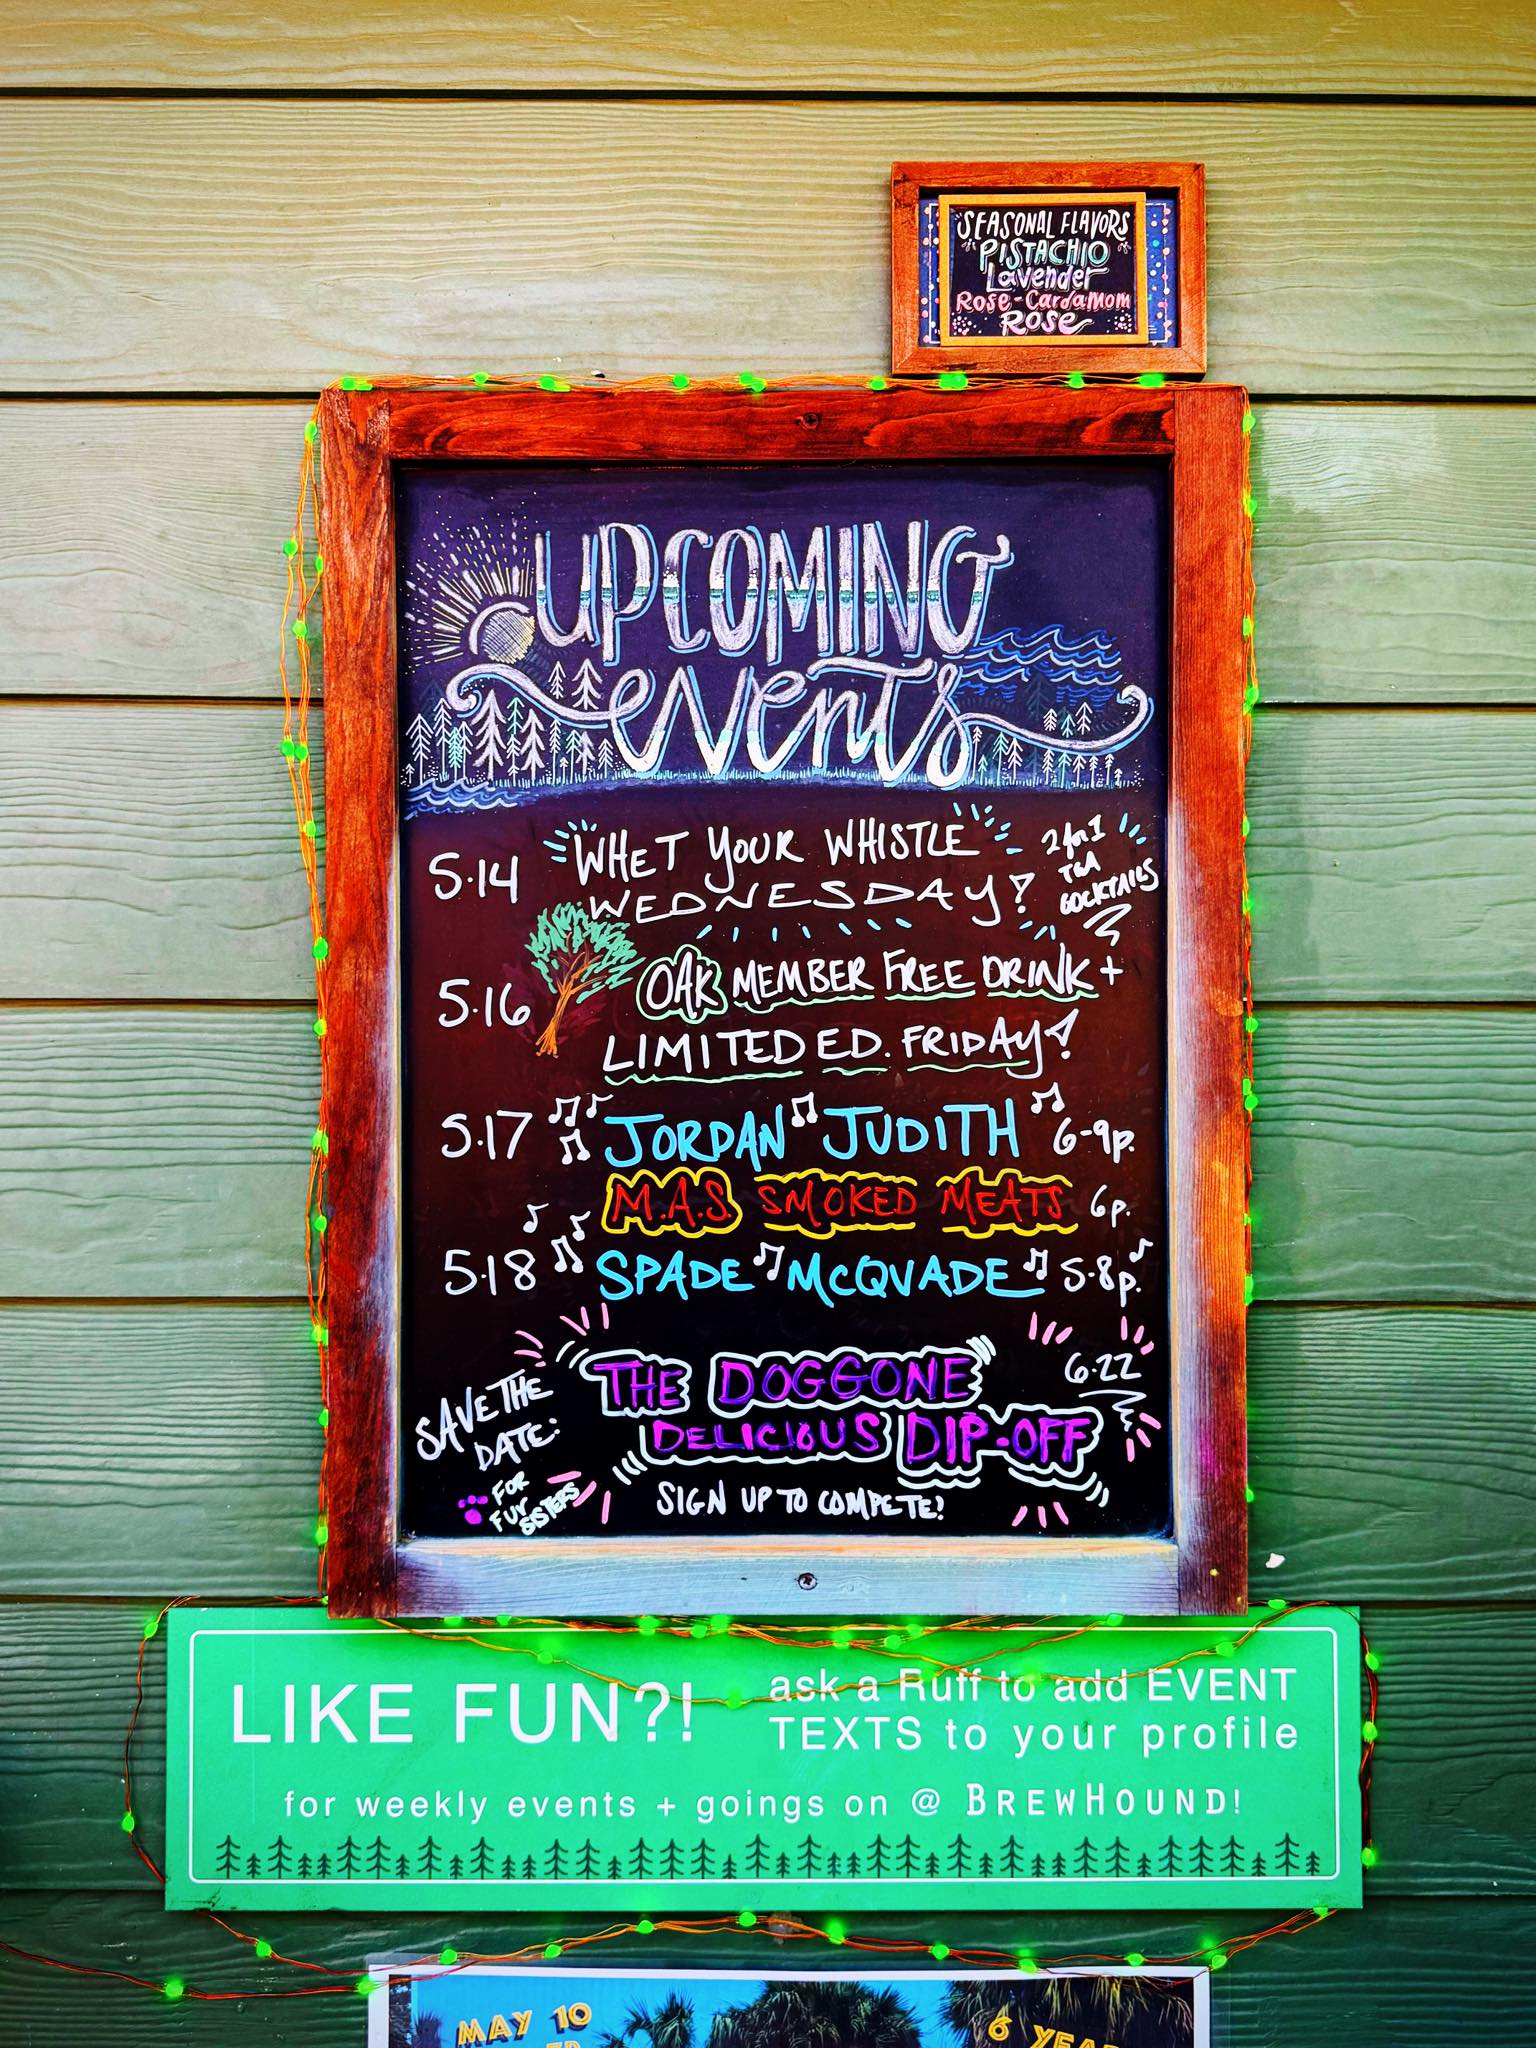 SEASONAL FLAVORS
PISTACHIO
Lavender
Rose-Cardamom
ROSE
UPCOMING
events
5.14 WHET YOUR WHISTLE
WEDNESDAY!
2 for 1
T&A
COCKTAILS
5.16 OAK MEMBER FREE DRINK +
LIMITED ED. FRIDAY!
5.17 JORDAN JUDITH 6-9p.
M.A.S. SMOKED MEATS 6p.
5.18 SPADE MCQUADE 5-8p.
SAVE THE
DATE:
FOR
FUR
SISTERS
THE DOGGONE 6.22
DELICIOUS DIP-OFF
SIGN UP TO COMPETE!
LIKE FUN?!
ask a Ruff to add EVENT
TEXTS to your profile
for weekly events + goings on @ BREWHOUND!
MAY 10
6 YEA